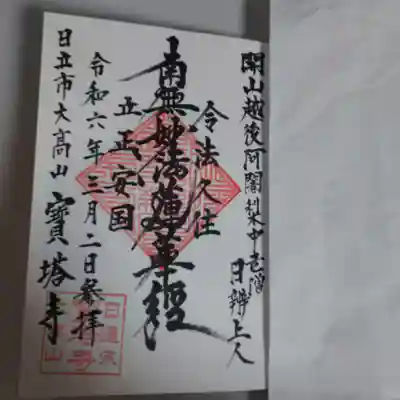 開山越後阿闍梨中老僧
日辨上人
令法久住
南無妙法蓮華経
立正安国
令和六年三月二日参拝
日立市大高山
寶塔寺